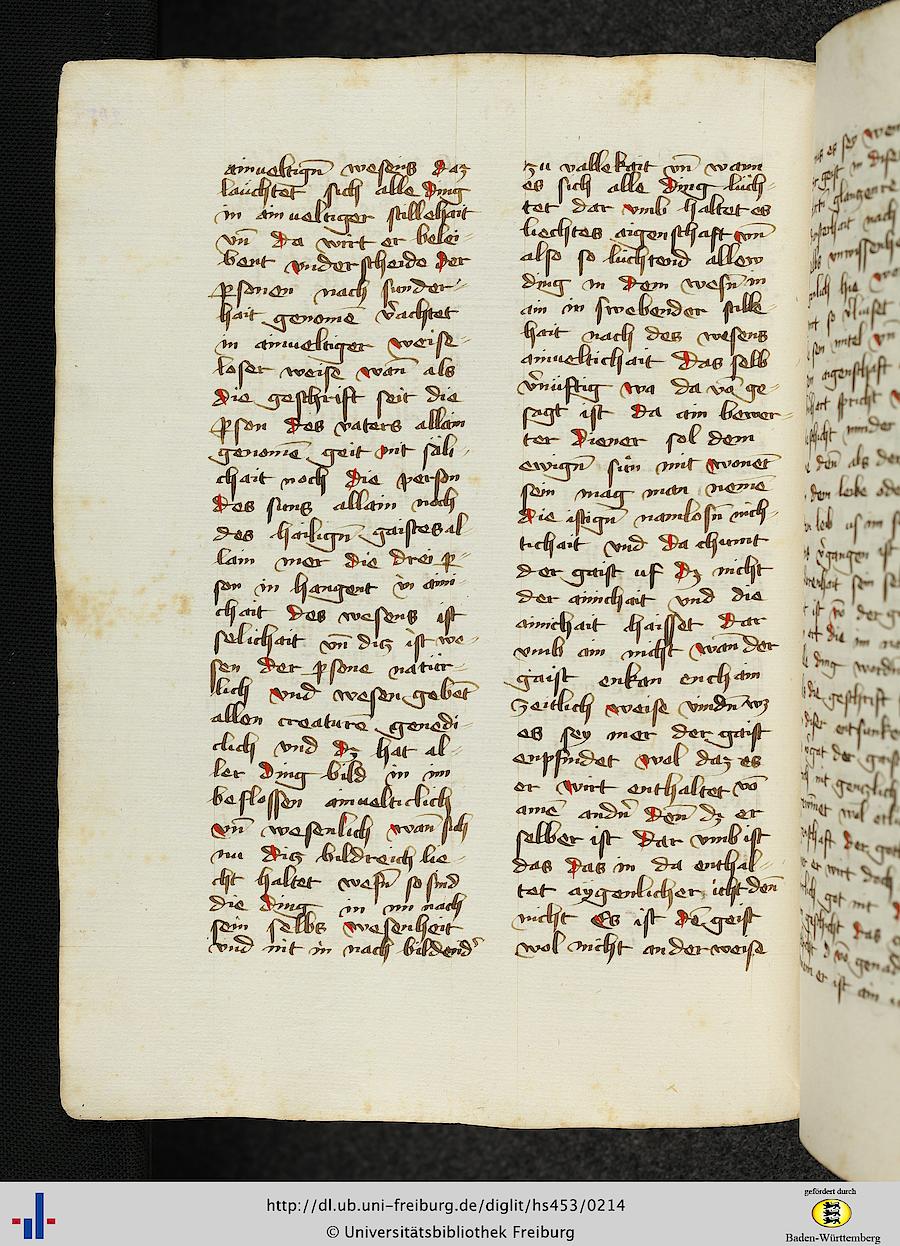 ainueltign̄ wesens daz
lauchtet sich alle Ding
in ainueltiger stillehait
vn̄ da wirt er belei-
bent vnderscheide der
ꝑsonen nach sunder-
hait genomē v̓achtet
in ainueltiger weise-
loser weise wan̄ als
die geschrift seit die
ꝑson des vaters allain
genomē geit nit säli-
chait noch die person
des suns allain noch
des hailign̄ gaistes al
lain mer die drei ꝑ-
son in hangent in aini-
chait des wesens ist
selichait vn̄ diz ist we-
sen der ꝑsone natür-
lich vnd wesen gebent
allen creature genedi-
clich vnd dz hat al-
ler ding bild in im
beflossen ainualticlich
vn̄ wesenlich wan̄ sich
nu diz bildreich lie-
cht haltet wesn̄ so sind
die ding in im nach
sein selbs wesenheit
vnd nit in nach bildend̓
zu vallekait vn̄ wann
es sich alle ding lüch-
tet dar vmb haltet es
liechtes aigenschaft vn̄
also so lüchtend allew
ding in dem wesn̄ in
ain in swebender stille-
hait nach des wesens
ainueltichait Das selb
v̓nüftig wa da vō ge-
sagt ist da ain bewer-
ter diener sol dem
ewign̄ sun mit wonet
sein mag man nemē
die istign̄ namlosn̄ nich-
tichait vnd da chumt
der gaist uf dz nicht
der ainchait vnd die
ainchait haisset dar
vmb ain nicht wan der
gaist enkan enchain
zeitlich weise vindn̄ wz
es sey mer der gaist
enpfindet wol daz es
er wirt enthaltet vō
ainē andn̄ den̄ dz er
selber ist dar vmb ist
das das in da enthal-
tet aygenlicher icht den̄
nicht Es ist dē geist
wol nicht an der weise
http://dl.ub.uni-freiburg.de/diglit/hs453/0214
© Universitätsbibliothek Freiburg
gefördert durch
Baden-Württemberg